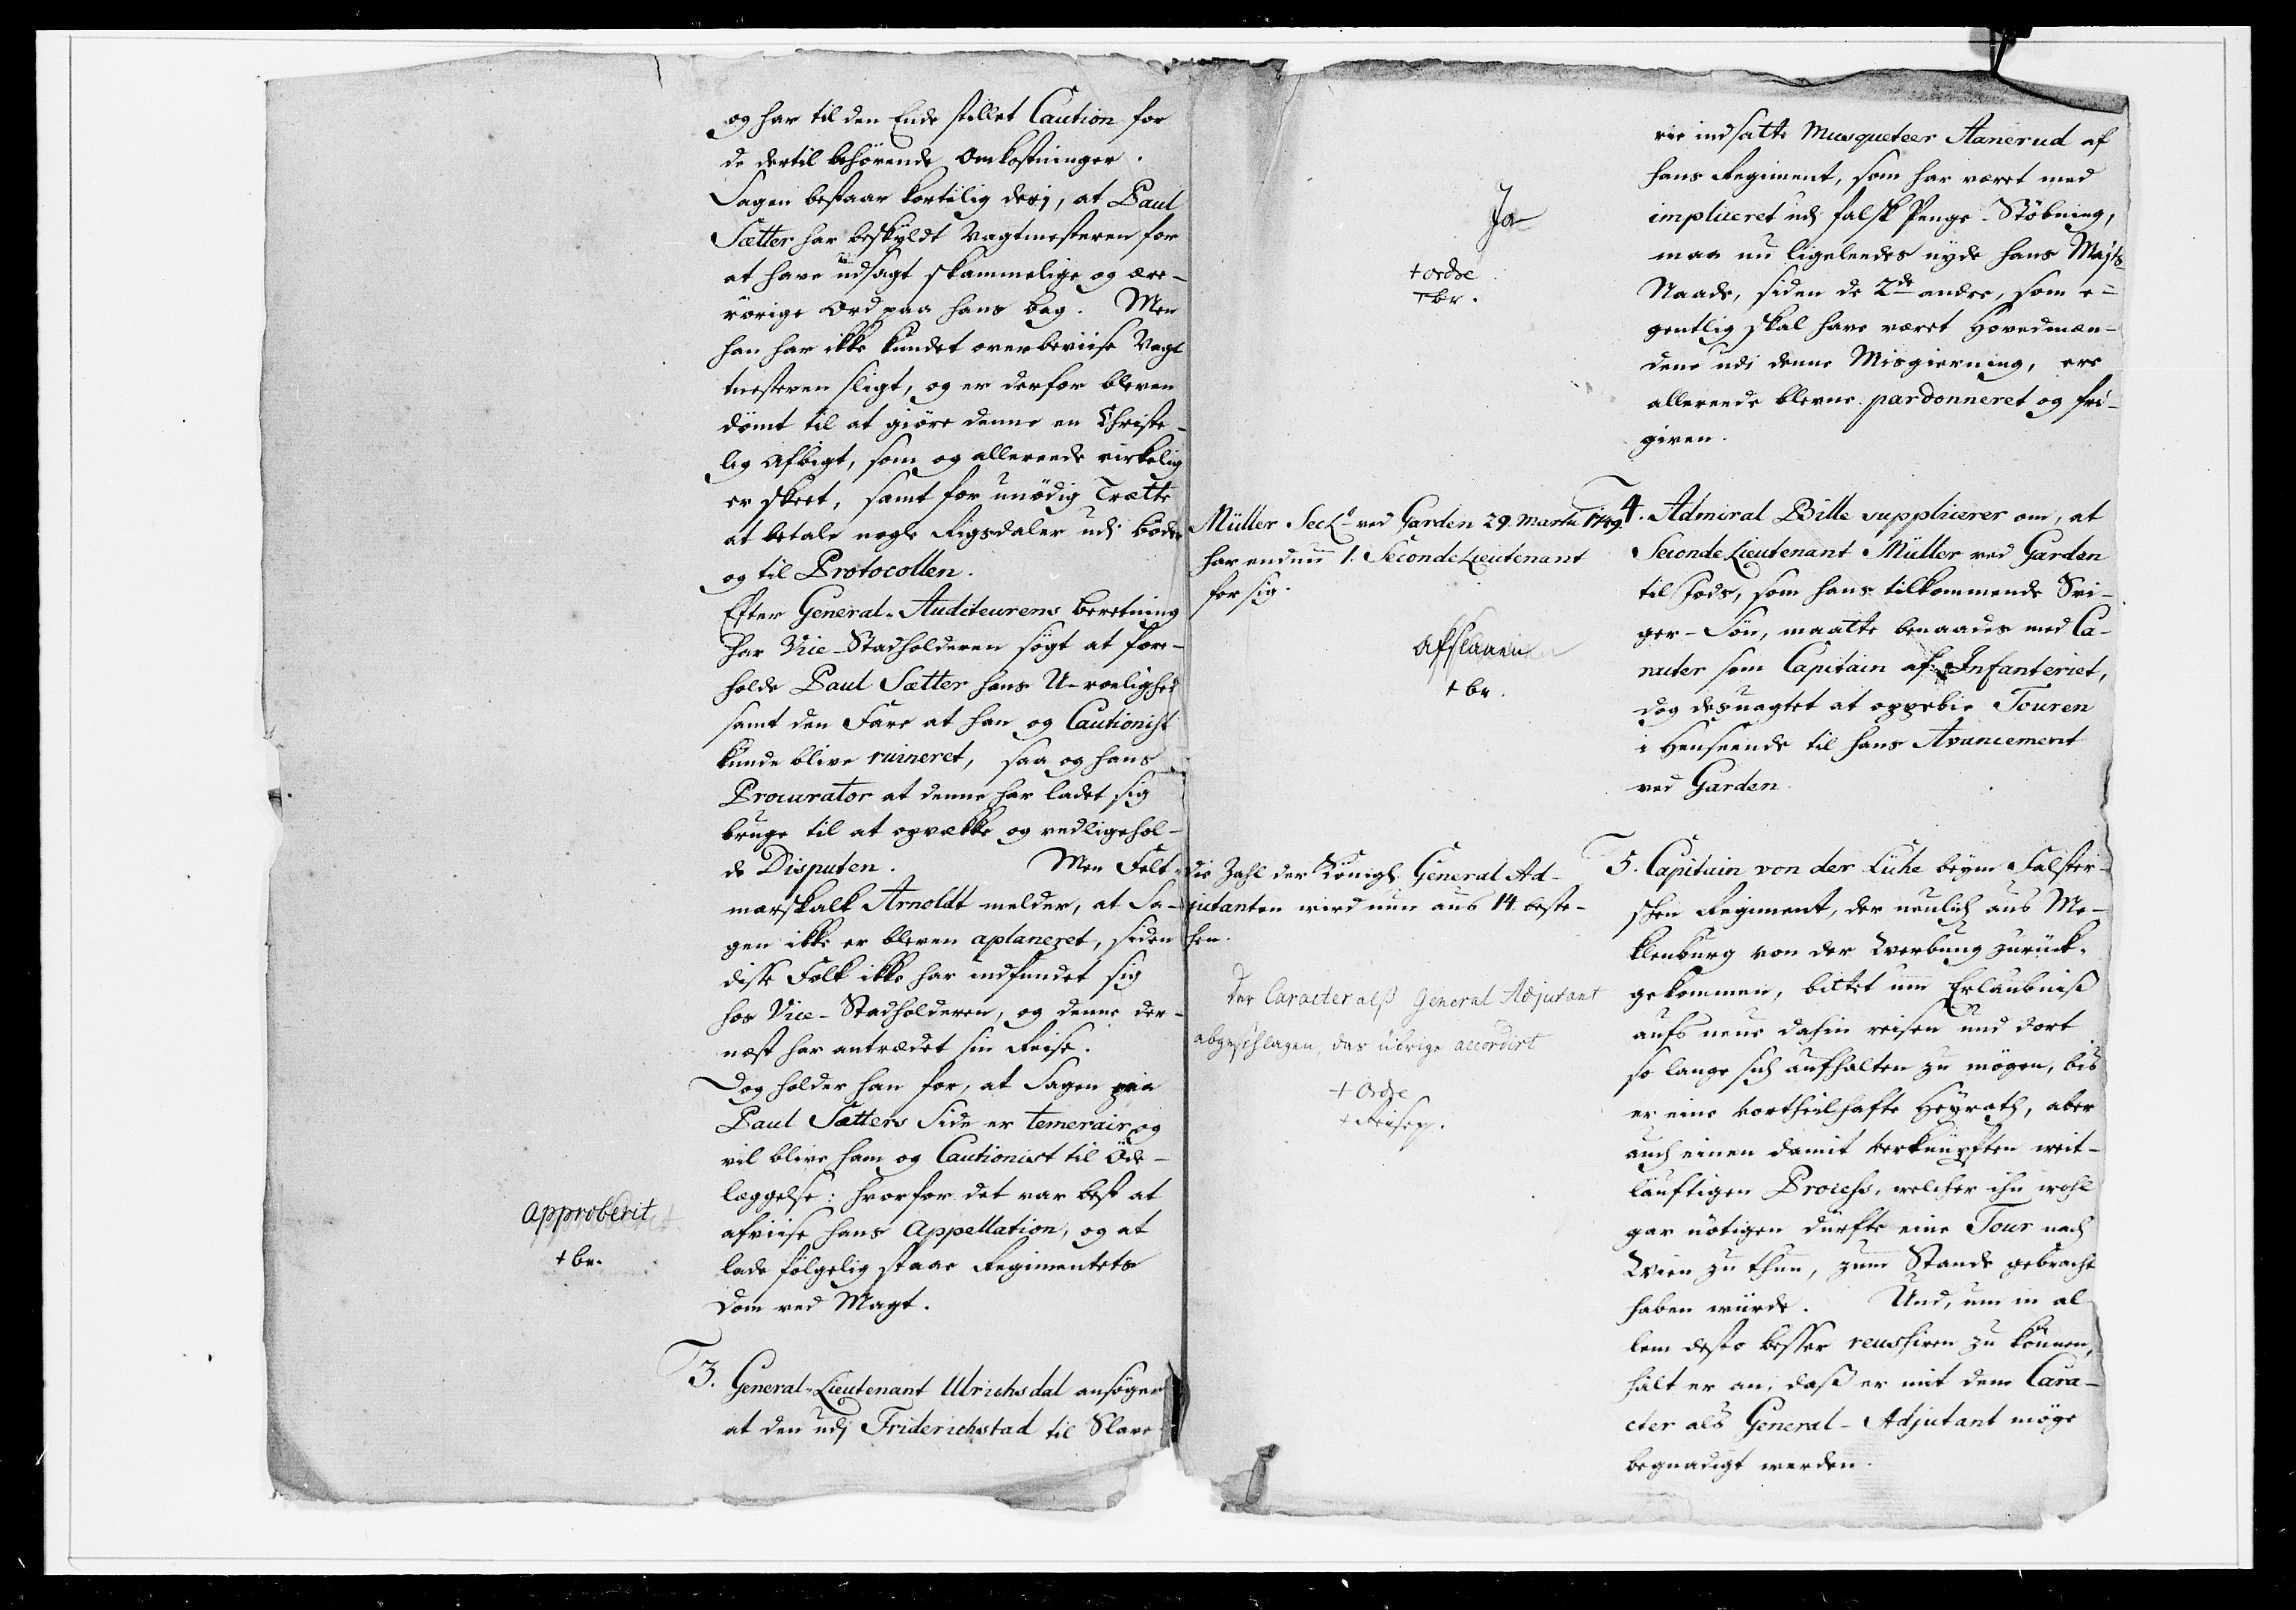 og har til den Ende stillet Caution for
de dertil behørende Omkostninger.
Sagen bestaar kortelig deri, at Paul
Sætter har beskyldt Vagtmesteren for
at have udsagt skammelige og ære-
rörige Ord paa hans bag. Men
han har ikke kundet overbeviise Vagt
mesteren sligt, og er derfor bleven
dömt til at giöre denne en Christe-
lig Afbigt, som og allereede virkelig
er skeet, samt for unödig Trætte
at betale nogle Rigsdaler udi böder
og til Protocollen.
Efter General-Auditeurens beretning
har Vice-Stadholderen sögt at fore-
holde Paul Sætter hans U-roelighed
samt den Fare at han og Cautionist
kunde blive ruineret, saa og hans
Procurator at denne har ladet sig
bruge til at opvække og vedligehol-
de Disputen. Men Felt-
marskalk Arnoldt melder, at Sa-
gen ikke er bleven aplaneret, siden
disse Folk ikke har indfundet sig
hos Vice-Stadholderen, og denne der-
næst har antrædet sin Reise.
Dog holder han for, at Sagen paa
Paul Sætters Side er temerair og
vil blive ham og Cautionist til Öde-
læggelse: hvorfor det var best at
afviise hans Appellation, og at
lade fölgelig staae Regimentets
Dom ved Magt.
Approberit
+ br.
3. General-Lieutenant Ulrichsdal ansöger
at den udi Friderichstad til Slave-
rie indsatte Musqueteer Aanerud af
hans Regiment, som har været med
impliceret udi falsk Penge-Stöbning,
maa nu ligeleedes nyde hans Majts
Naade, siden de 2de andre, som e-
gentlig skal have været Hovedmæn-
dene udi denne Misgierning, ere
allereede blevne pardonneret og fri-
given.
Ja
+ ordre
+ br.
4. Admiral Bille supplicerer om, at
Seconde Lieutenant Müller ved Garden
til Fods, som hans tilkommende Svi-
ger-Sön, maatte benaades med Ca-
racter som Capitain af Infanteriet,
dog desuagtet at oppebie Touren
i Henseende til hans Avancement
ved Garden
Müller Sec Lt ved Garden 29. Martii 1749.
har endnu 1. Seconde Lieutenant
for sig.
Afslaaen
+ br.
5. Capitain von der Lühe beÿm Falster-
schen Regiment, der neulich aus Me-
klenburg von der Werbung zurück-
gekommen, bittet um Erlaubniß
aufs neue dahin reisen und dort
so lange sich aufhalten zu mögen, bis
er eine vortheilhafte Heyrath, aber
auch einen damit verknüpften weit-
läuftigen Process, welcher ihn wohl
gar nötigen dürfte eine Tour nach
Wien zu thun, zum Stande gebracht
haben würde. Und, um in al-
lem desto besser reussiren zu können,
hält er an, daß er mit dem Cara-
cter als General-Adjutant möge
begnadigt werden.
die Zahl der Königl. General Ad-
jutanten wird nun aus 14. beste-
hen.
Der Caracter alß General Adjutant
abgeschlagen, das übrige accordirt
+ Ordre
+ Reisep.